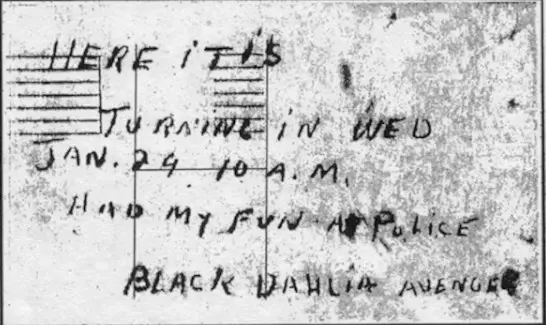 HERE iT iS
TURNiNG iN WED
JAN. 29 10 A.M.
HAD MY FUN AT POLiCE
BLACK DAHLIA AVENGER